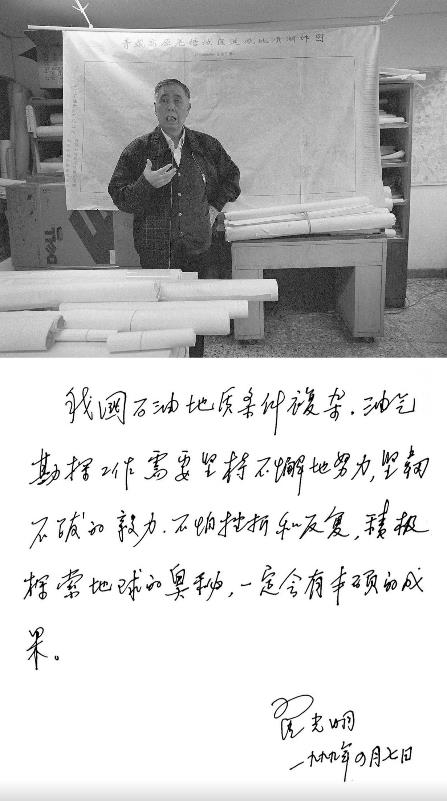 我国石油地质条件複杂.油气
勘探工作需要坚持不懈地努力,坚韧
不拔的毅力.不怕挫折和反复,積极
探索地球的奥秘,一定会有丰硕的成
果。
翟光明
一九九九年四月七日